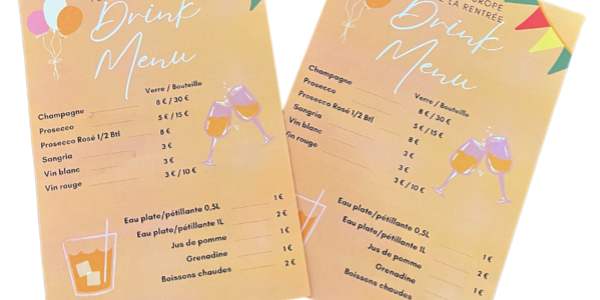 Drink
Menu
Verre / Bouteille
Champagne 8 € / 30 €
Prosecco 5 € / 15 €
Prosecco Rosé 1/2 Btl 8 €
Sangria 3 €
Vin blanc 3 €
Vin rouge 3 € / 10 €
Eau plate/pétillante 0,5L 1 €
Eau plate/pétillante 1L 2 €
Jus de pomme 1 €
Grenadine 1 €
Boissons chaudes 2 €
LA RENTRÉE
Drink
Menu
Verre / Bouteille
Champagne 8 € / 30 €
Prosecco 5 € / 15 €
Prosecco Rosé 1/2 Btl 8 €
Sangria 3 €
Vin blanc 3 €
Vin rouge 3 € / 10 €
Eau plate/pétillante 0,5L 1 €
Eau plate/pétillante 1L 2 €
Jus de pomme 1 €
Grenadine 1 €
Boissons chaudes 2 €